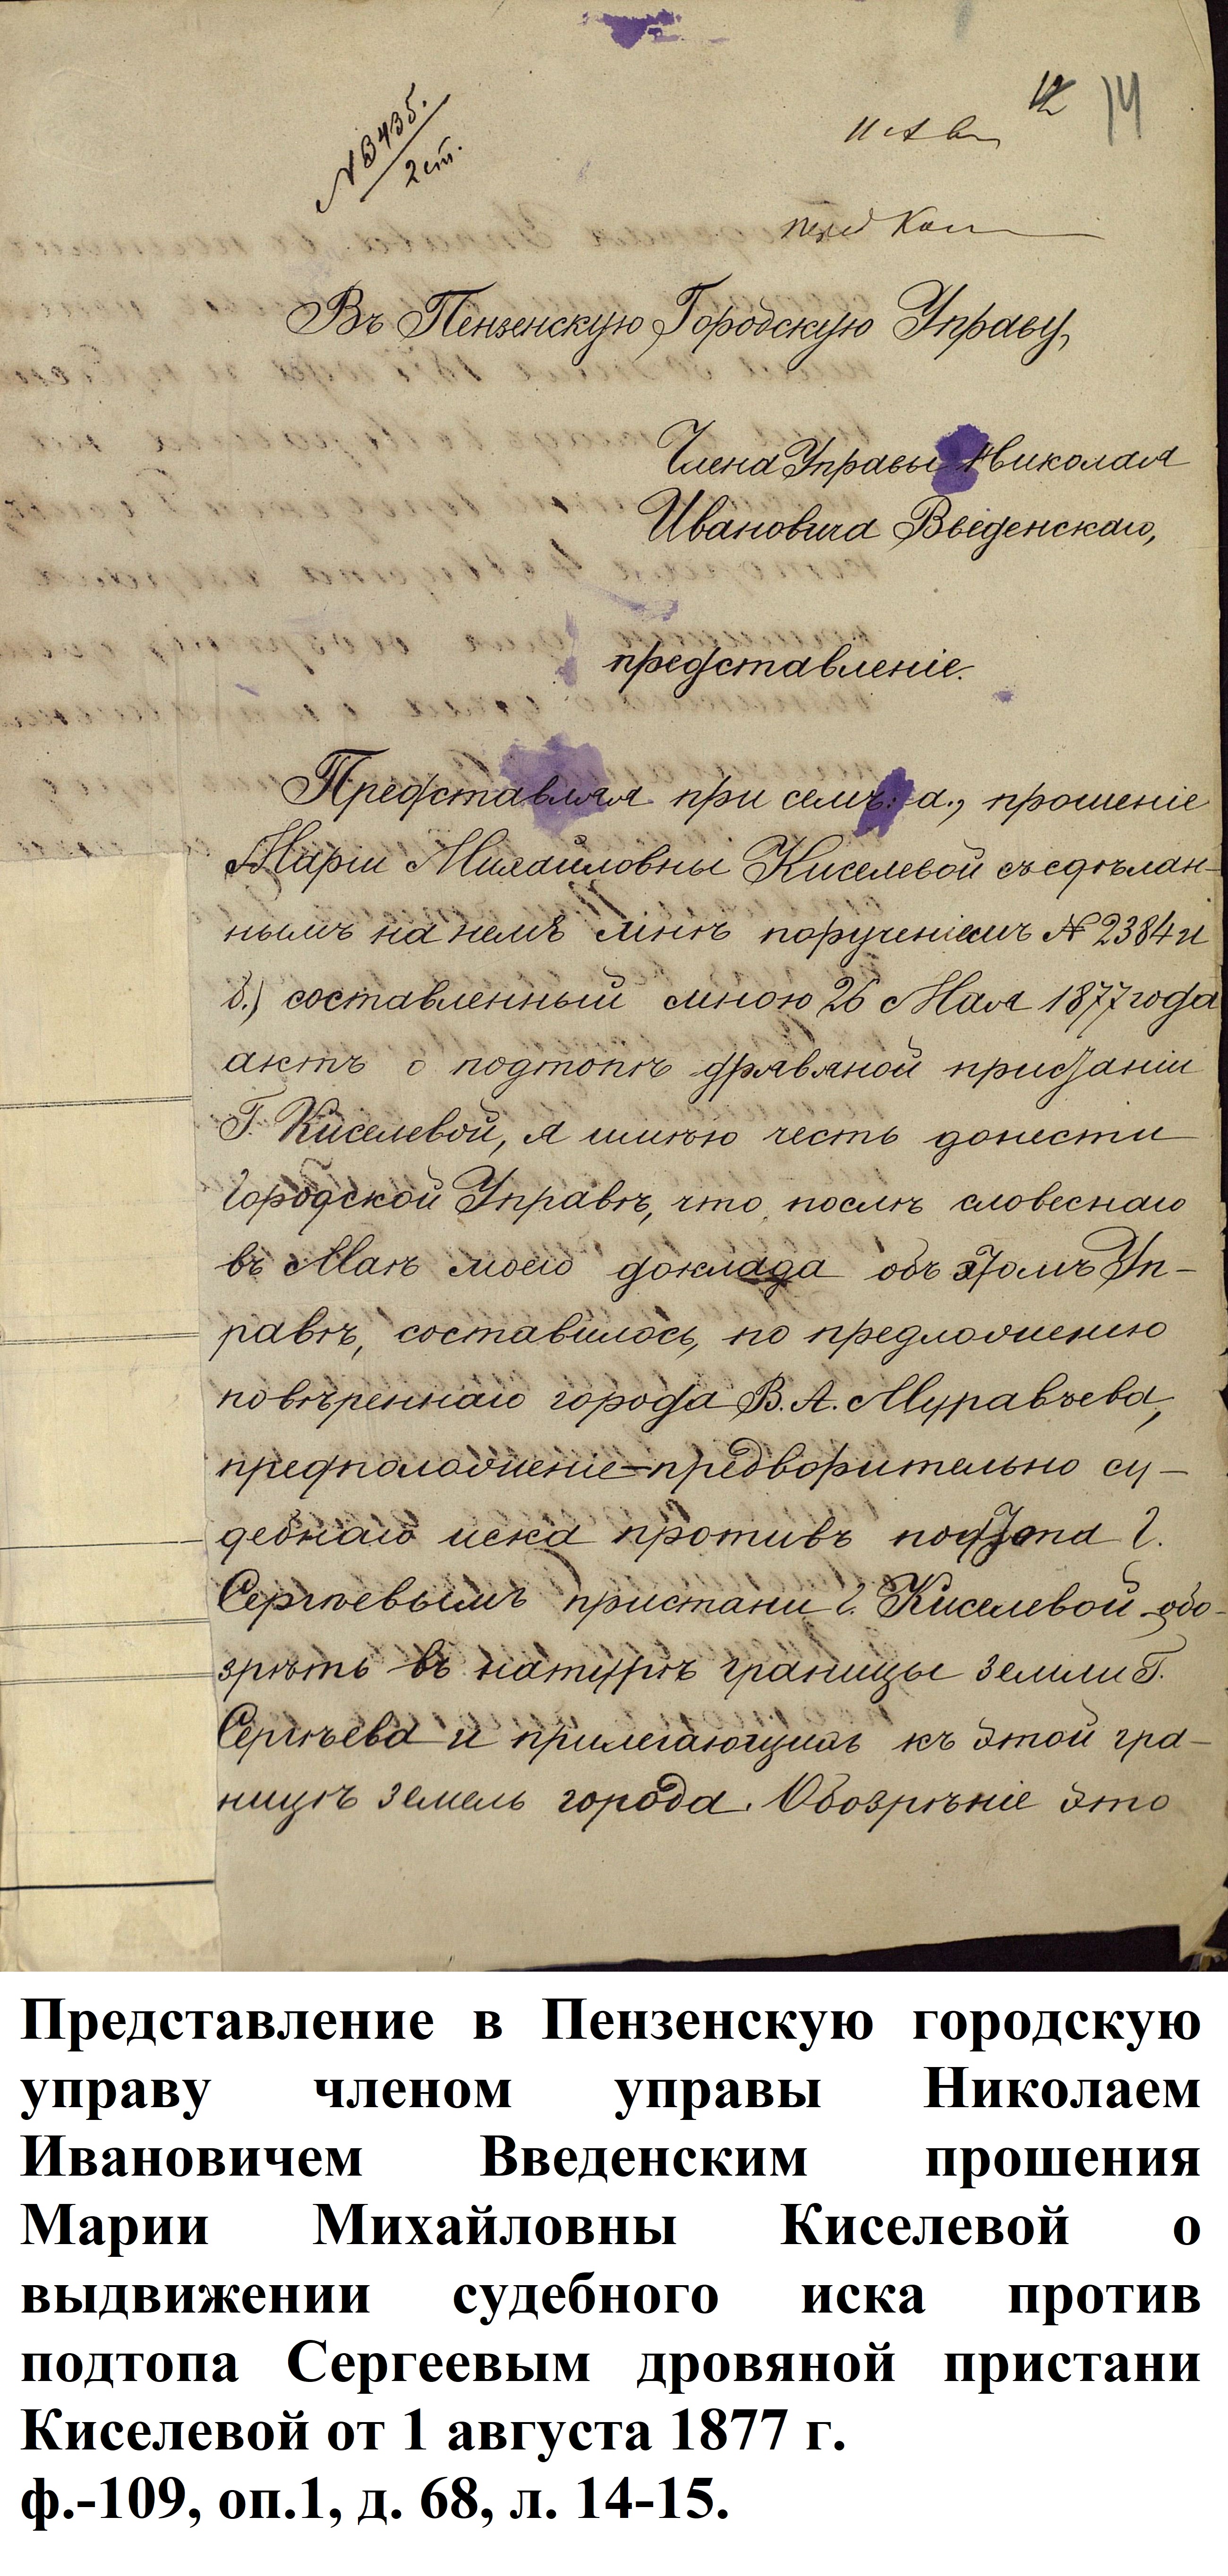 № 3435.
2 ст.
12 14
Въ Пензенскую Городскую Управу,
Члена Управы Николая
Ивановича Введенскаго,
представленіе.
Представляя при семъ: а., прошеніе
Маріи Михайловны Киселевой съ сдѣлан-
нымъ на немъ мнѣ порученіемъ № 2384 и
б.) составленный мною 26 Мая 1877 года
актъ о подтопѣ дравяной пристани
Г. Киселевой, я имѣю честь донести
Городской Управѣ, что послѣ словеснаго
въ Маѣ моего доклада объ этомъ Уп-
равѣ, составилось, по предложенію
повѣреннаго города В. А. Муравьева,
предположеніе-предворительно су-
дебнаго иска противъ подтопа Г.
Сергѣевымъ пристани Г. Киселевой обо-
зрѣть въ натурѣ границы земли Г.
Сергѣева и прилегающихъ къ этой гра-
ницѣ земель города. Обозрѣніе это
Представление в Пензенскую городскую
управу членом управы Николаем
Ивановичем Введенским прошения
Марии Михайловны Киселевой о
выдвижении судебного иска против
подтопа Сергеевым дровяной пристани
Киселевой от 1 августа 1877 г.
ф.-109, оп.1, д. 68, л. 14-15.